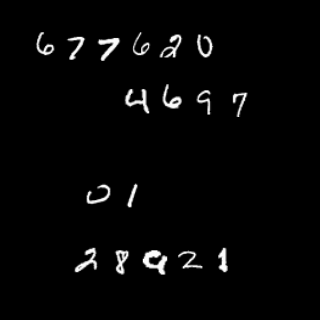 677620
4697
01
28921